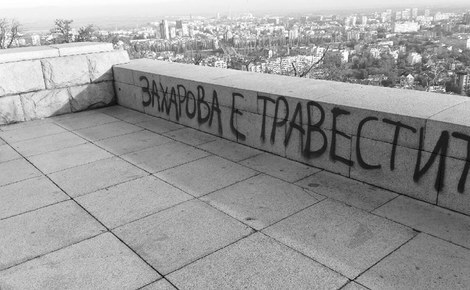 ЗАХАРОВА Е ТРАВЕСТИТ